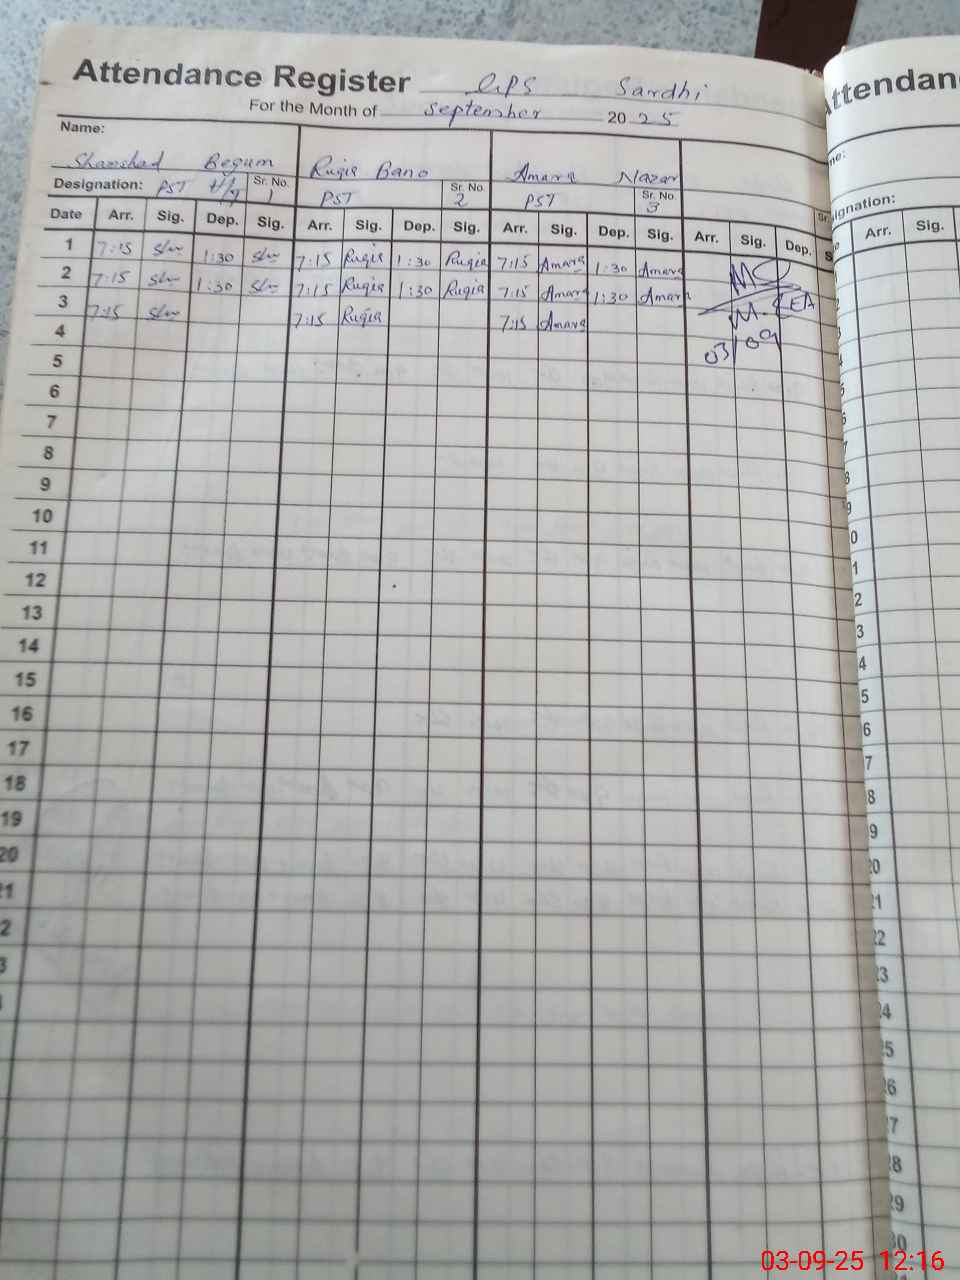 Attendance Register GPS Sardhi
For the Month of September 2025
Name:
Shamshad Begum Ruqia Bano Amara Nazar
Designation: PST H/T Sr. No. 1 PST Sr. No. 2 PST Sr. No. 3
Date Arr. Sig. Dep. Sig. Arr. Sig. Dep. Sig. Arr. Sig. Dep. Sig. Arr. Sig. Dep.
1 7:15 1:30 7:15 Ruqia 1:30 Ruqia 7:15 Amara 1:30 Amara
2 7:15 1:30 7:15 Ruqia 1:30 Ruqia 7:15 Amara 1:30 Amara
3 7:15 7:15 Ruqia 7:15 Amara
4
5
6
7
8
9
10
11
12
13
14
15
16
17
18
19
20
03/09
Attendan
Arr. Sig.
03-09-25 12:16